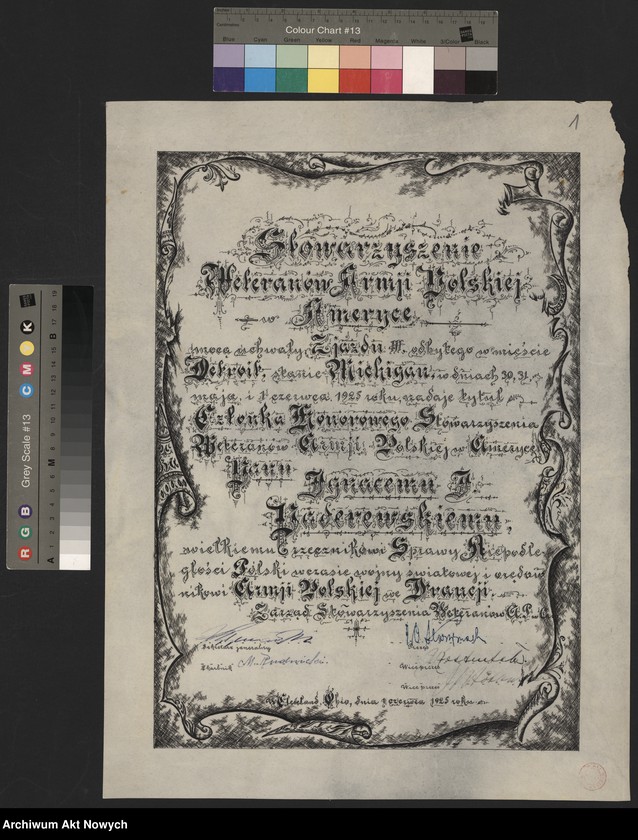 Colour Chart #13
Blue Cyan Green Yellow Red Magenta White 3/Color Black
Grey Scale #13
R G B C M Y K
A M B
1
Stowarzyszenie
Weteranów Armji Polskiej
w Ameryce
mocą uchwały Zjazdu III. odbytego w mieście
Detroit, stanie Michigan, w dniach 30, 31,
maja, i 1 czerwca 1925 roku, nadaje tytuł
Członka Honorowego Stowarzyszenia
Weteranów Armji Polskiej w Ameryce
Panu
Ignacemu J.
Paderewskiemu,
wielkiemu rzecznikowi Sprawy Niepodle-
głości Polski wczasie wojny światowej i orędow-
nikowi Armji Polskiej we Francji.
Zarząd Stowarzyszenia Weteranów A.P. w A.
Sekretarz generalny
Prezes
Skarbnik
Wiceprezes
Wiceprezes
w Cleveland, Ohio, dnia czerwca 1925 roku
Archiwum Akt Nowych